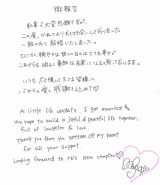 御報告
私事で大変恐縮ですが、
この度、かねてよりお付き合いしておりました
一般の方と結婚いたしました。
とても穏やかな
これからも明るく素敵な
いつも応援して下さる皆様へ
心からの愛と感謝を込めて
A little life update, I got married &
we hope to build a joyful & peaceful life together,
full of laughter & love.
Thank you from the bottom of my heart
for all your support.
Looking forward to this new chapter